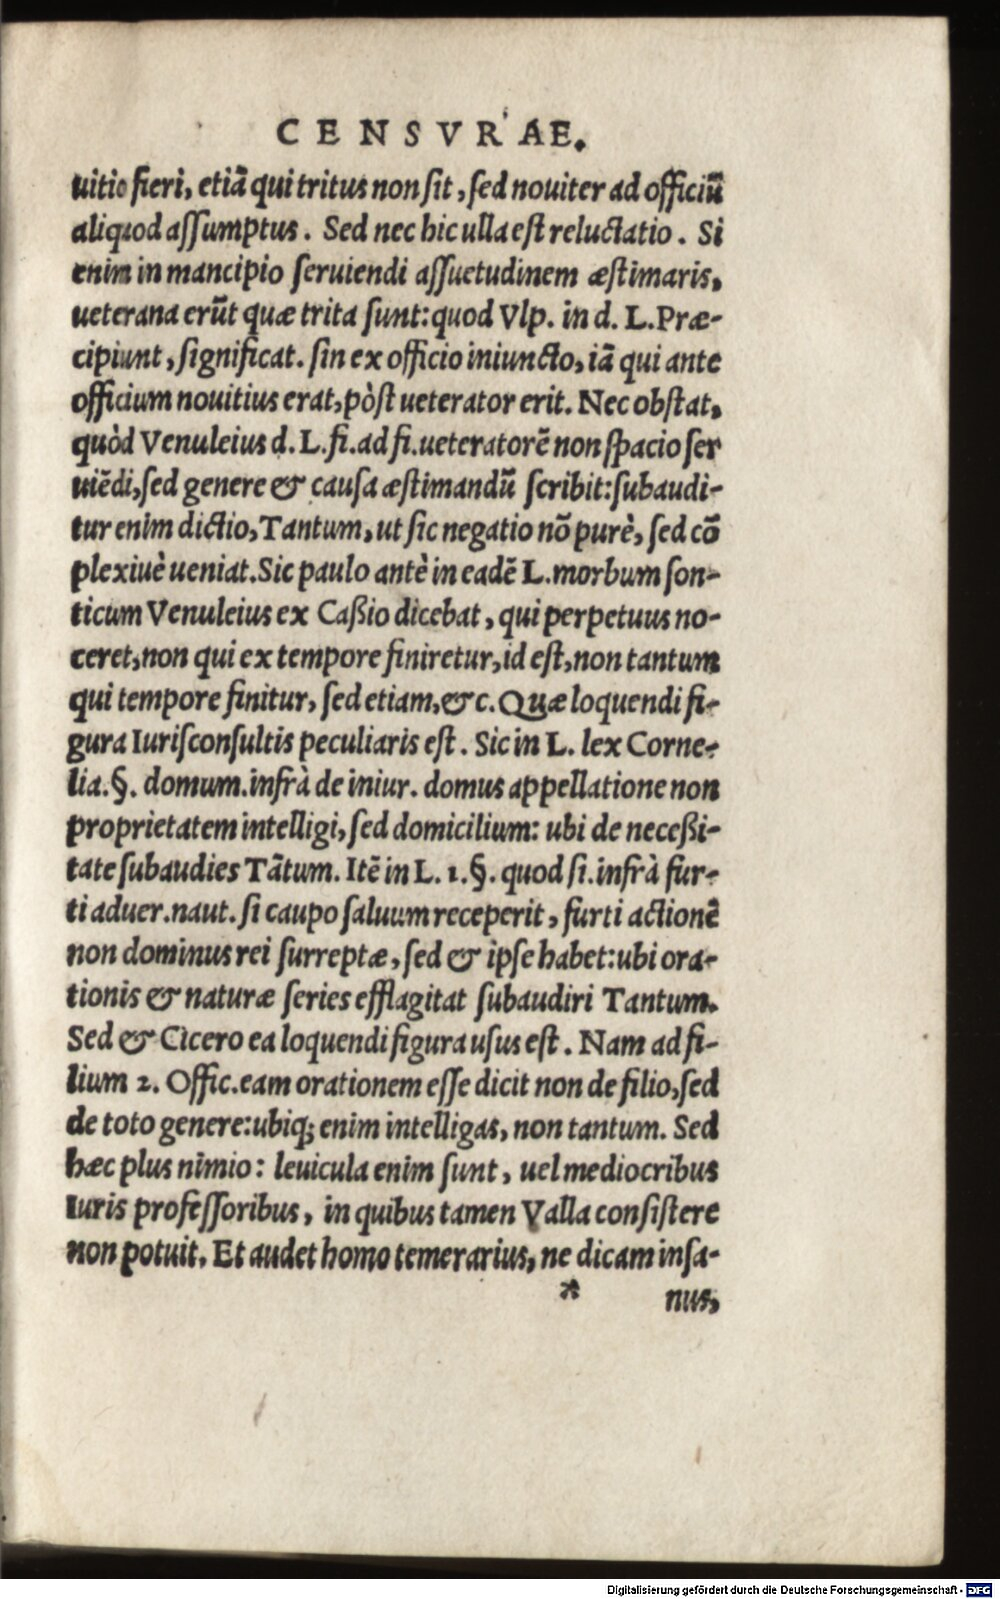 CENSVRAE.
uitio fieri, etiã qui tritus non sit, sed nouiter ad officiũ
aliquod assumptus. Sed nec hic ulla est reluctatio. Si
enim in mancipio seruiendi assuetudinem æstimaris,
ueterana erũt quæ trita sunt: quod Vlp. in d. L. Præ-
cipiunt, significat. sin ex officio iniuncto, iã qui ante
officium nouitius erat, pòst ueterator erit. Nec obstat,
quòd Venuleius d. L. fi. ad fi. ueteratorẽ non spacio ser
uiẽdi, sed genere & causa æstimandũ scribit: subaudi-
tur enim dictio, Tantum, ut sic negatio nõ purè, sed cõ
plexiuè ueniat. Sic paulo antè in eadẽ L. morbum son-
ticum Venuleius ex Caßio dicebat, qui perpetuus no-
ceret, non qui ex tempore finiretur, id est, non tantum
qui tempore finitur, sed etiam, &c. Quæ loquendi fi-
gura Iurisconsultis peculiaris est. Sic in L. lex Corne-
lia. §. domum. infrà de iniur. domus appellatione non
proprietatem intelligi, sed domicilium: ubi de neceßi-
tate subaudies Tãtum. Itẽ in L. 1. §. quod si. infrà fur-
ti aduer. naut. si caupo saluum receperit, furti actionẽ
non dominus rei surreptæ, sed & ipse habet: ubi ora-
tionis & naturæ series efflagitat subaudiri Tantum.
Sed & Cicero ea loquendi figura usus est. Nam ad fi-
lium 2. Offic. eam orationem esse dicit non de filio, sed
de toto genere: ubiq; enim intelligas, non tantum. Sed
hæc plus nimio: leuicula enim sunt, uel mediocribus
Iuris professoribus, in quibus tamen Valla consistere
non potuit. Et audet homo temerarius, ne dicam insa-
* nus,
Digitalisierung gefördert durch die Deutsche Forschungsgemeinschaft - DFG